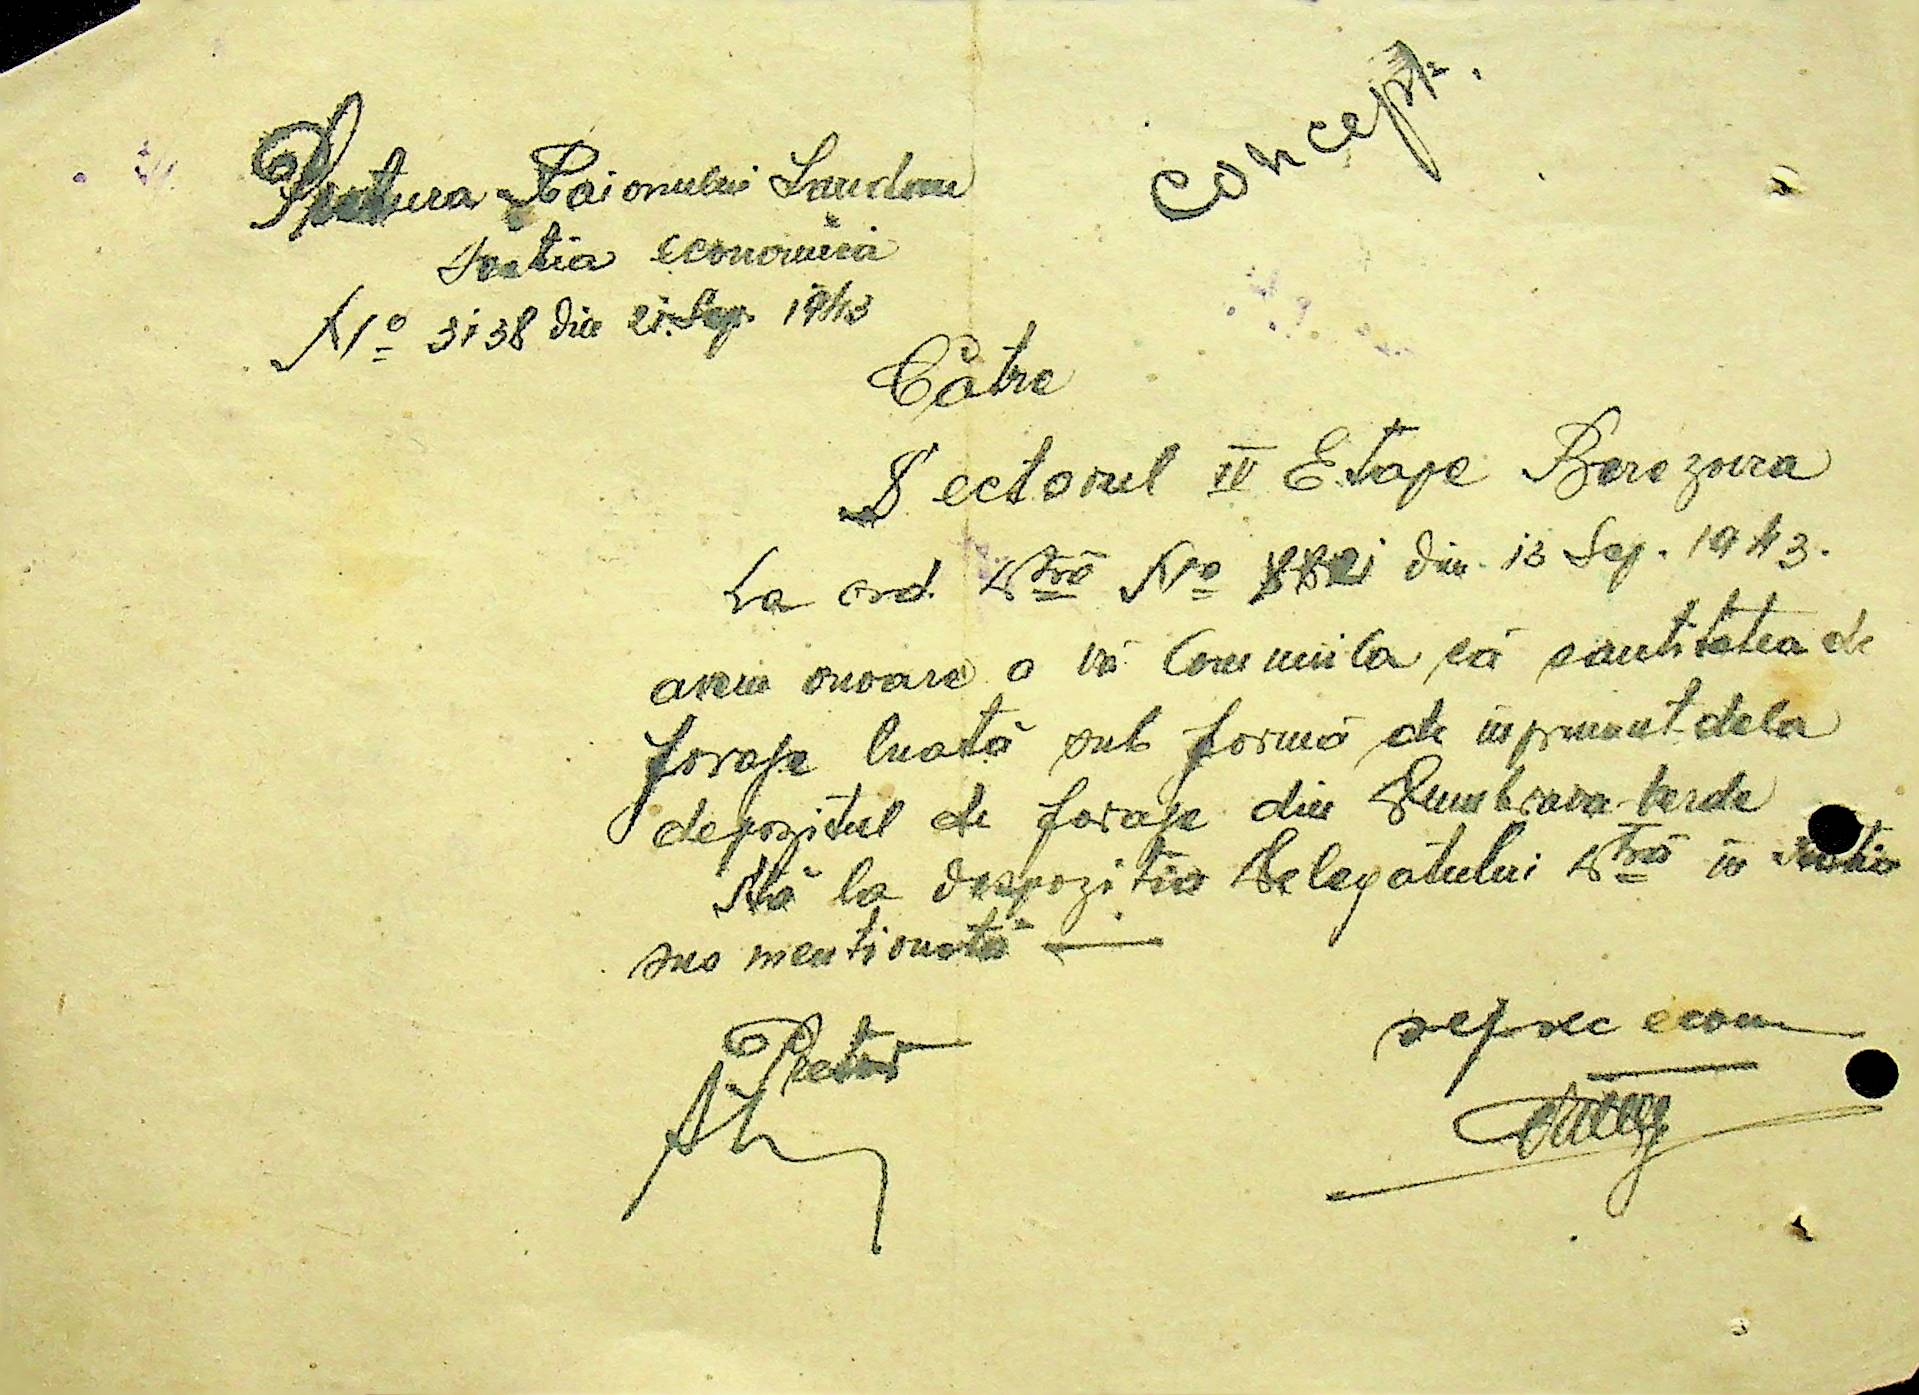 concept.
Pretura Raionului Landau
Sectia economica
No 3138 din 21. Sep. 1943
Către
Sectorul IV Etape Berezovca
La ord. Dtră No din 13 Sep. 1943.
avem onoare a vă comunica că cantitatea de
furaje luată sub formă de inprumut dela
depozitul de furaje din Dumbrava verde
stă la dispozitia Delegatului Dtră in
sus mentionată —
Pretor
sef sec econ